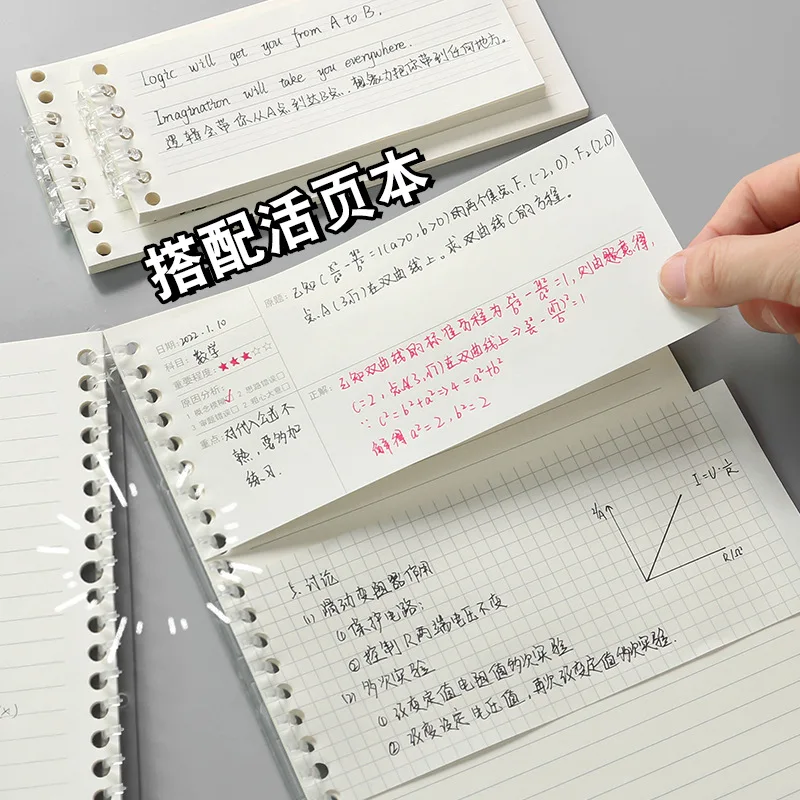 Logic will get you from A to B.
Imagination will take you everywhere.
逻辑会带你从A点到达B点,想象力把你带到任何地方。
搭配活页本
原题:
已知C x²/a²-y²/b²=1(a>0,b>0)的两个焦点F₁(-2,0)、F₂(2,0)
点A(3,√7)在双曲线上。求双曲线C的方程。
日期:2022.1.10
科目:数学
重要程度:★★★☆☆
原因分析:
1.概念模糊☑ 2.思路错误□
3.审题错误□ 4.粗心大意□
重点:对代入公式不
熟,要多加
练习.
正解:
已知双曲线的标准方程为x²/a²-y²/b²=1,则由题意得,
c=2,点A(3,√7)在双曲线上⇒
∵c²=b²+a²⇒4=a²+b²
解得a²=2,b²=2
5.讨论
(1)滑动变阻器作用
①保护电路;
②控制R两端电压不变
(2)多次实验
①改变定值电阻值多次实验
②改变设定电压值,再次改变定值多次实验.
I=U·1/R
I/A
R/Ω
x)